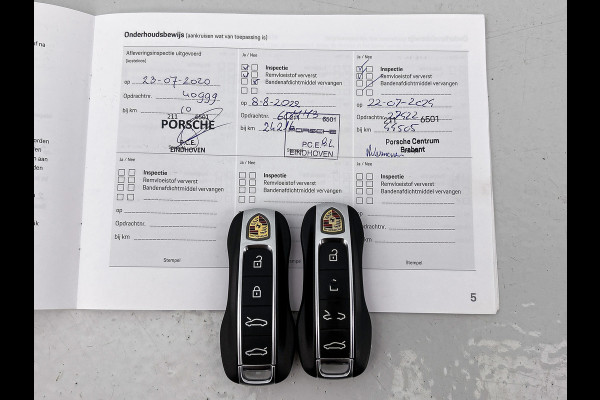 Onderhoudsbewijs (aankruisen wat van toepassing is)
Afleveringsinspectie uitgevoerd
op 23-07-2020
Opdrachtnr. 40999
bij km 10
211 6501
PORSCHE
P.C.E.
EINDHOVEN
Ja / Nee
Inspectie
Remvloeistof ververst
Bandenafdichtmiddel vervangen
op 8-8-2022
Opdrachtnr.
bij km
6501
PORSCHE
P.C.E.
EINDHOVEN
Ja / Nee
Inspectie
Remvloeistof ververst
Bandenafdichtmiddel vervangen
op 22-07-2024
Opdrachtnr. 27522
211 6501
bij km
Porsche Centrum
Brabant
Ja / Nee
Inspectie
Remvloeistof ververst
Bandenafdichtmiddel vervangen
op
Opdrachtnr.
bij km
Stempel
Ja / Nee
Inspectie
Remvloeistof ververst
Bandenafdichtmiddel vervangen
Ja / Nee
Inspectie
Remvloeistof ververst
Bandenafdichtmiddel vervangen
Stempel
5